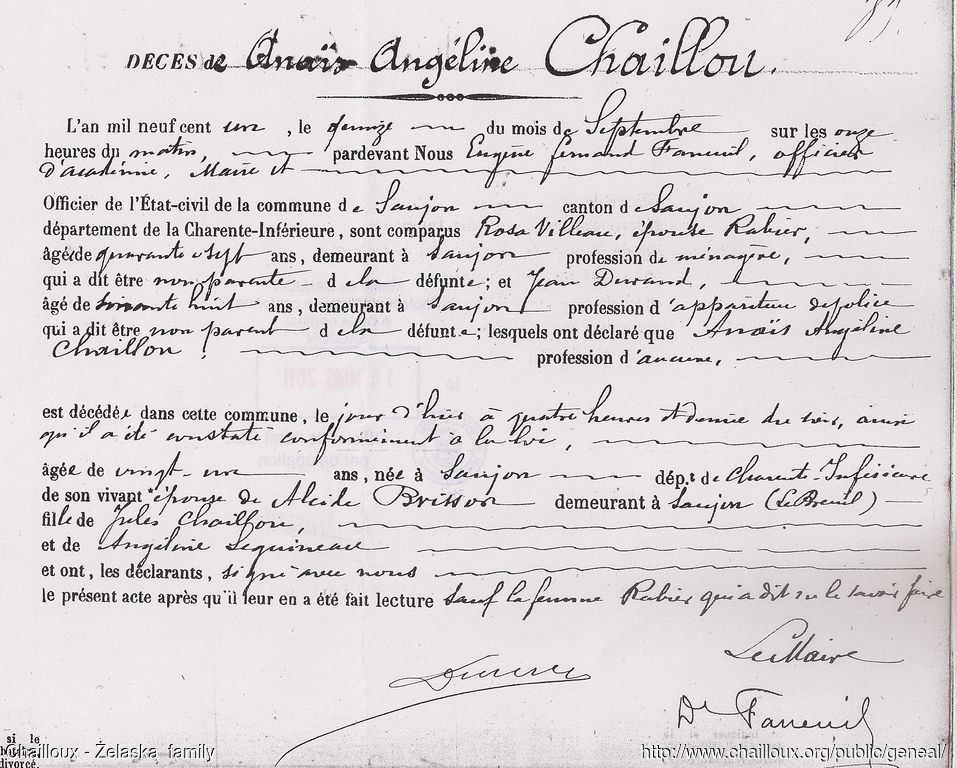 DECES de Anaïs Angéline Chaillou.
L'an mil neuf cent un, le quinze du mois de Septembre sur les onze
heures du matin, pardevant Nous Eugène Fernand Faneuil, officier
d'académie, Maire et
Officier de l'État-civil de la commune de Saujon canton de Saujon
département de la Charente-Inférieure, sont comparus Rosa Villeau, épouse Rabier,
âgé de quarante sept ans, demeurant à Saujon profession de ménagère,
qui a dit être non parente de la défunte; et Jean Durand,
âgé de soixante huit ans, demeurant à Saujon profession d'appariteur de police
qui a dit être non parent de la défunte; lesquels ont déclaré que Anaïs Angéline
Chaillou, profession d'aucune,
est décédée dans cette commune, le jour d'hier à quatre heures et demie du soir, ainsi
qu'il a été constaté conformément à la loi,
âgée de vingt-un ans, née à Saujon dép.t de Charente-Inférieure
de son vivant épouse de Alcide Brisson demeurant à Saujon (Le Breuil)
fille de Jules Chaillou,
et de Angéline Seguineau
et ont, les déclarants, signé avec nous
le présent acte après qu'il leur en a été fait lecture sauf la femme Rabier qui a dit ne le savoir faire
Le Maire
Dr Faneuil
si le
divorcé.
Chailloux - Želaska family
http://www.chailloux.org/public/geneal/